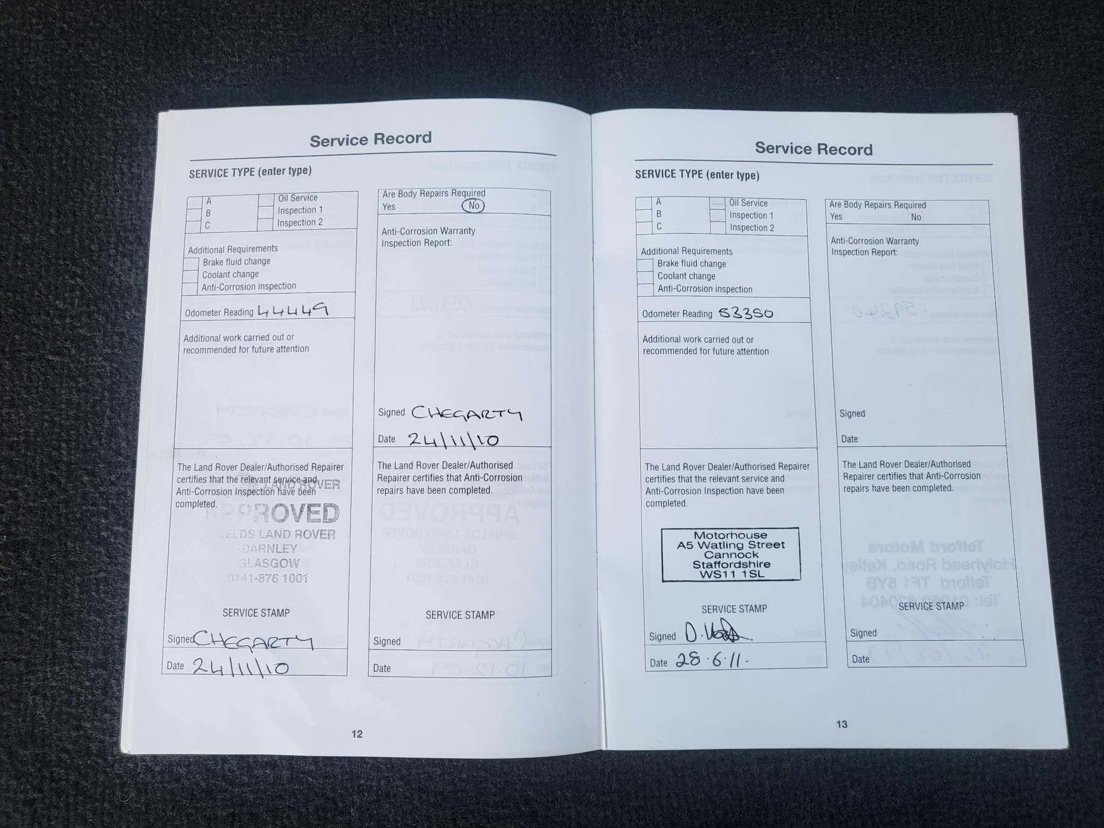 Service Record
SERVICE TYPE (enter type)
A
B
C
Oil Service
Inspection 1
Inspection 2
Additional Requirements
Brake fluid change
Coolant change
Anti-Corrosion inspection
Odometer Reading 44449
Additional work carried out or
recommended for future attention
The Land Rover Dealer/Authorised Repairer
certifies that the relevant service and
Anti-Corrosion Inspection have been
completed.
LAND ROVER
APPROVED
SHIELDS LAND ROVER
DARNLEY
GLASGOW
0141-876 1001
SERVICE STAMP
Signed CHEGARTY
Date 24/11/10
Are Body Repairs Required
Yes No
Anti-Corrosion Warranty
Inspection Report:
Signed CHEGARTY
Date 24/11/10
The Land Rover Dealer/Authorised
Repairer certifies that Anti-Corrosion
repairs have been completed.
SERVICE STAMP
Signed
Date
12
Service Record
SERVICE TYPE (enter type)
A
B
C
Oil Service
Inspection 1
Inspection 2
Additional Requirements
Brake fluid change
Coolant change
Anti-Corrosion inspection
Odometer Reading 53350
Additional work carried out or
recommended for future attention
The Land Rover Dealer/Authorised Repairer
certifies that the relevant service and
Anti-Corrosion Inspection have been
completed.
Motorhouse
A5 Watling Street
Cannock
Staffordshire
WS11 1SL
SERVICE STAMP
Signed
Date 28.6.11.
Are Body Repairs Required
Yes No
Anti-Corrosion Warranty
Inspection Report:
Signed
Date
The Land Rover Dealer/Authorised
Repairer certifies that Anti-Corrosion
repairs have been completed.
SERVICE STAMP
Signed
Date
13